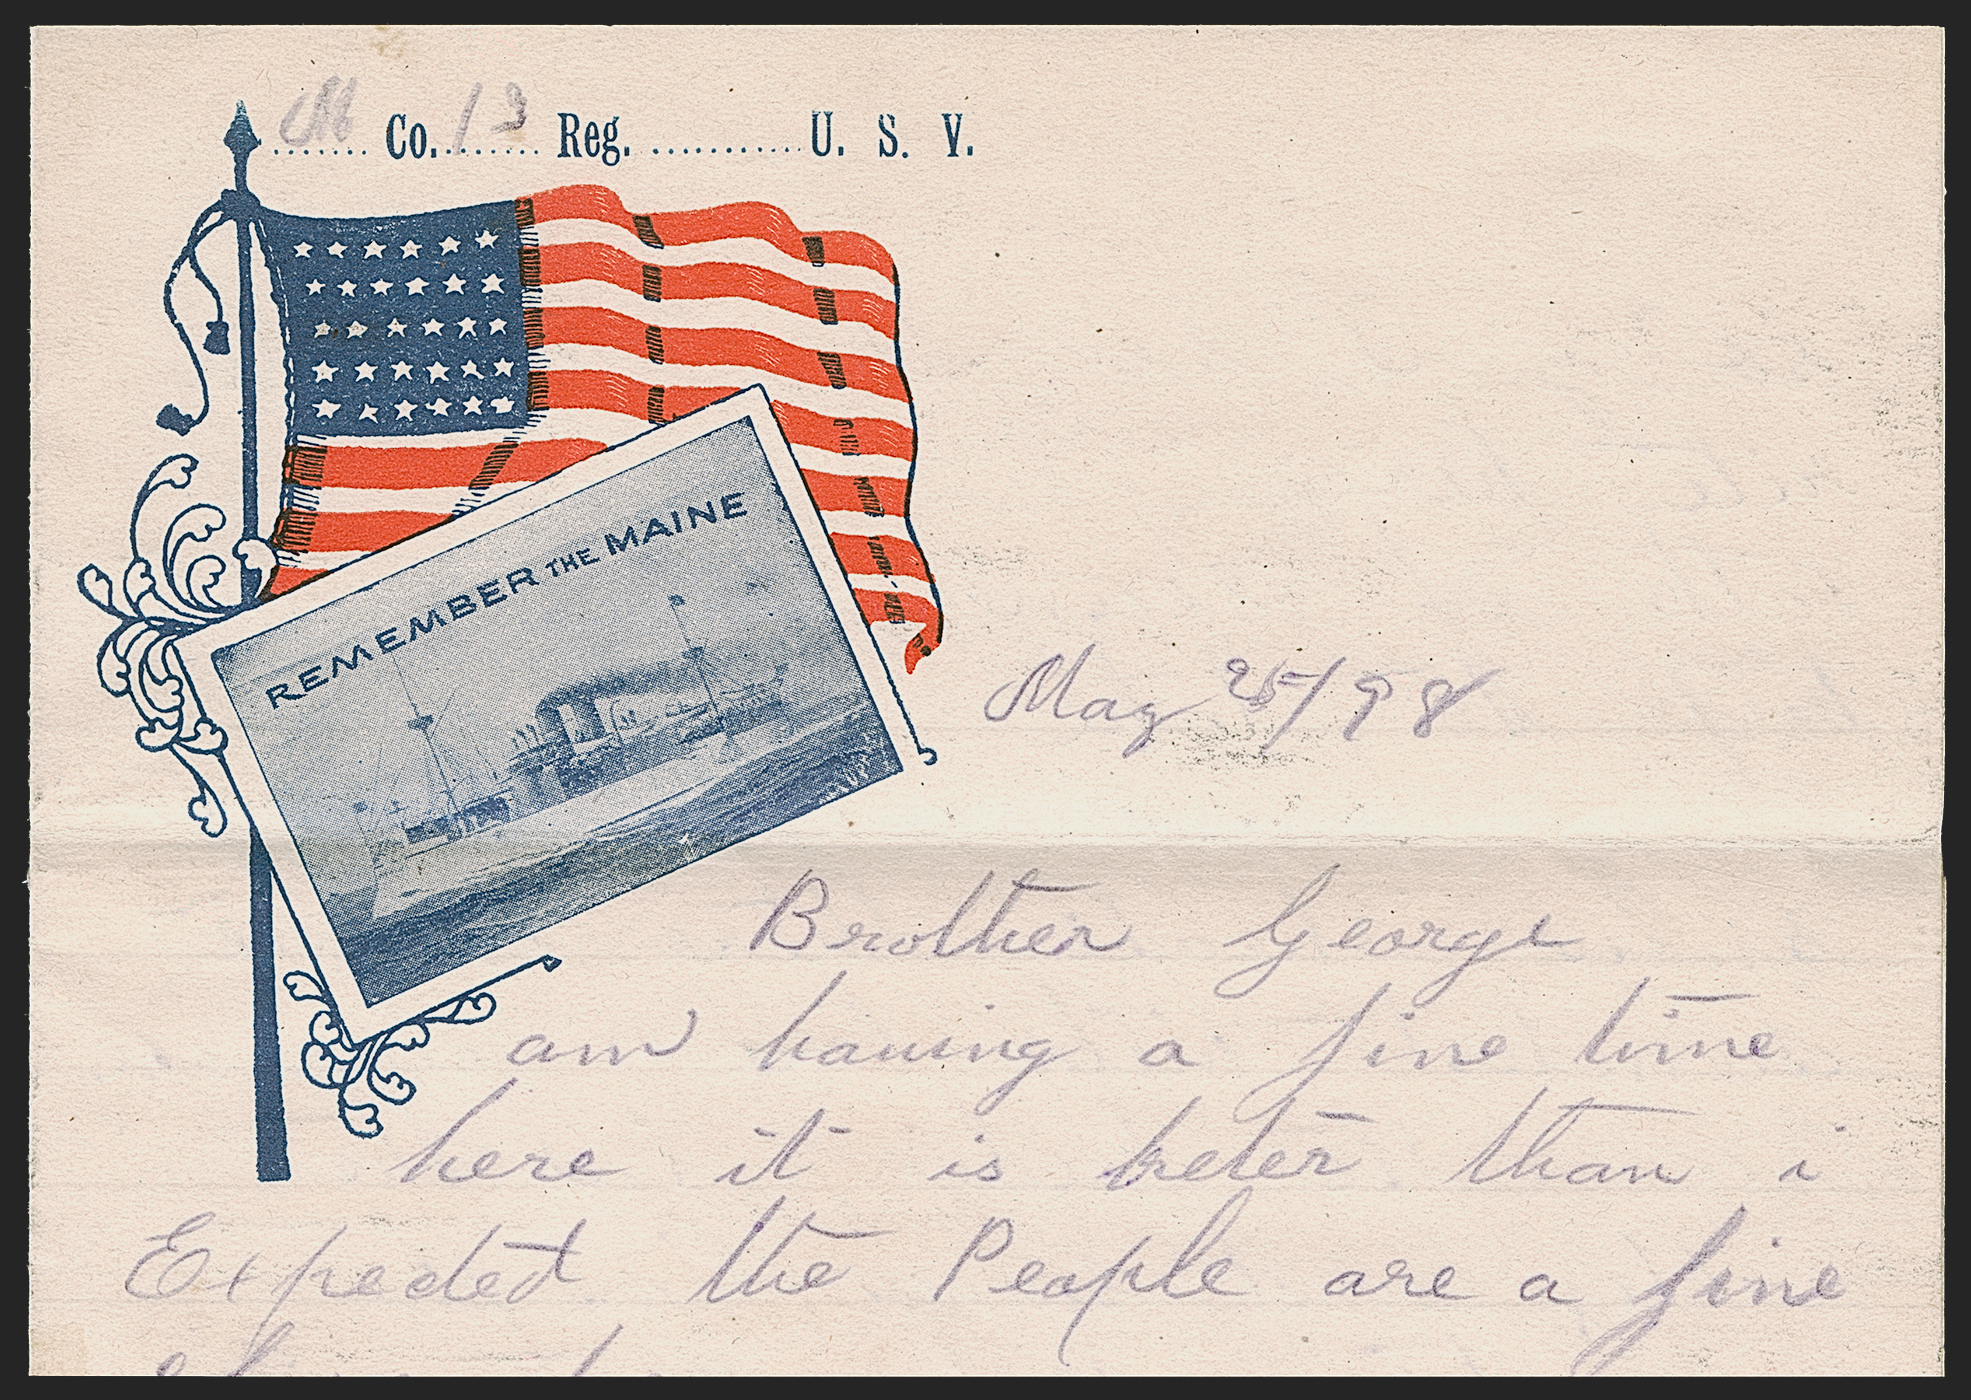 M Co. 13 Reg. U. S. V.
REMEMBER THE MAINE
May 25/98
Brother George
am having a fine time
here it is beter than i
Expected the People are a fine